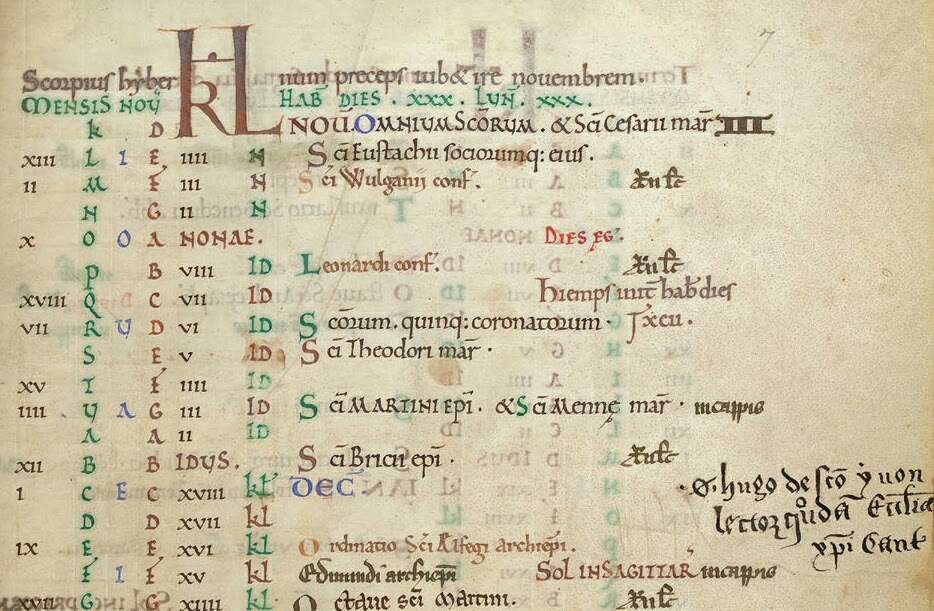 7
Scorpius hyber KL num preceps iub& ire nouembrem.
MENSIS NOU HAB DIES . XXX . LUN . XXX .
k D NOU. OMNIUM SCORUM . & Sci Cesarii mar III
xiii L I E iiii N Sci Eustachii sociorumq: eius .
ii M F iii N Sci Wulganii conf.
N G ii N
x O O A NONAE . DIES EG.
P B viii ID Leonardi conf.
xviii Q C vii ID hiemps init hab dies
vii R U D vi ID Scorum . quinq: coronatorum . xcii .
S E v ID Sci Theodori mar .
xv T F iiii ID
iiii U A G iii ID Sci MARTINI EPI . & Sci Menne mar .
A A ii ID
xii B B IDUS . Sci Bricii epi .
i C E C xviii kl DEC
D D xvii kl
ix E E xvi kl Ordinatio Sci Ælfegi archiepi .
F I F xv kl Edmundi archiepi SOL IN SAGITTAR
xvii G G xiiii kl Octaue sci Martini .
hugo de sco yuon
lector
xpi Cant